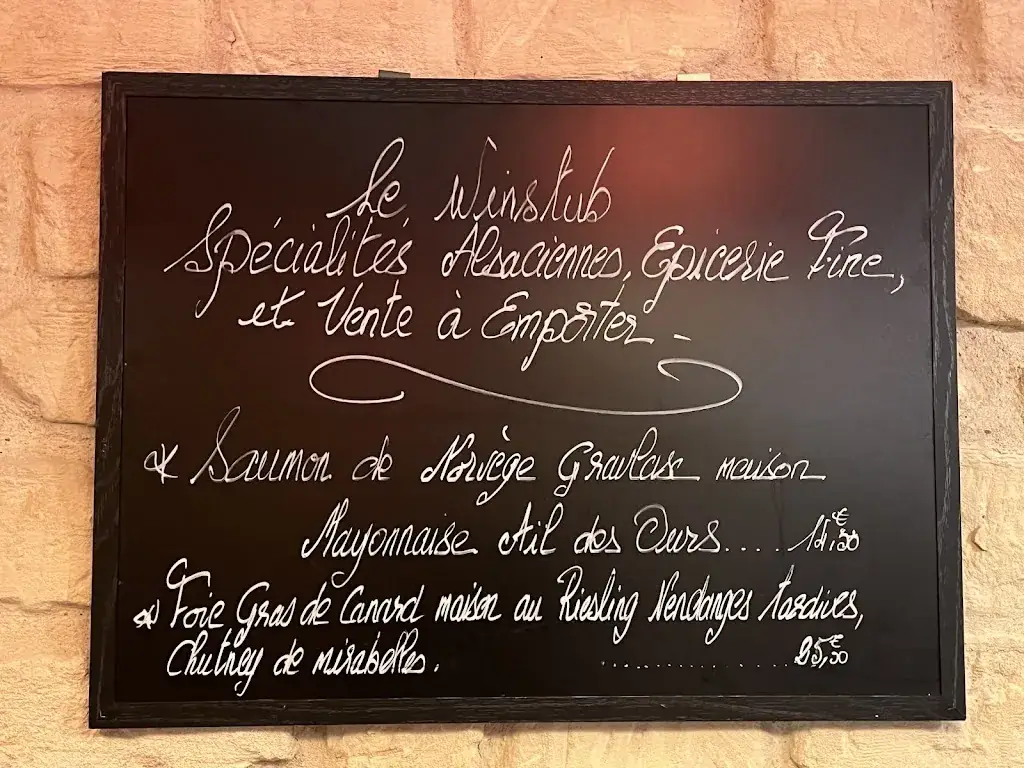 Le Winstub
Spécialités Alsaciennes, Epicerie Fine,
et Vente à Emporter -
* Saumon de Norvège Gravlax maison
Mayonnaise Ail des Ours....
* Foie Gras de Canard maison au Riesling Vendanges tardives,
Chutney de mirabelles. ............25,50€